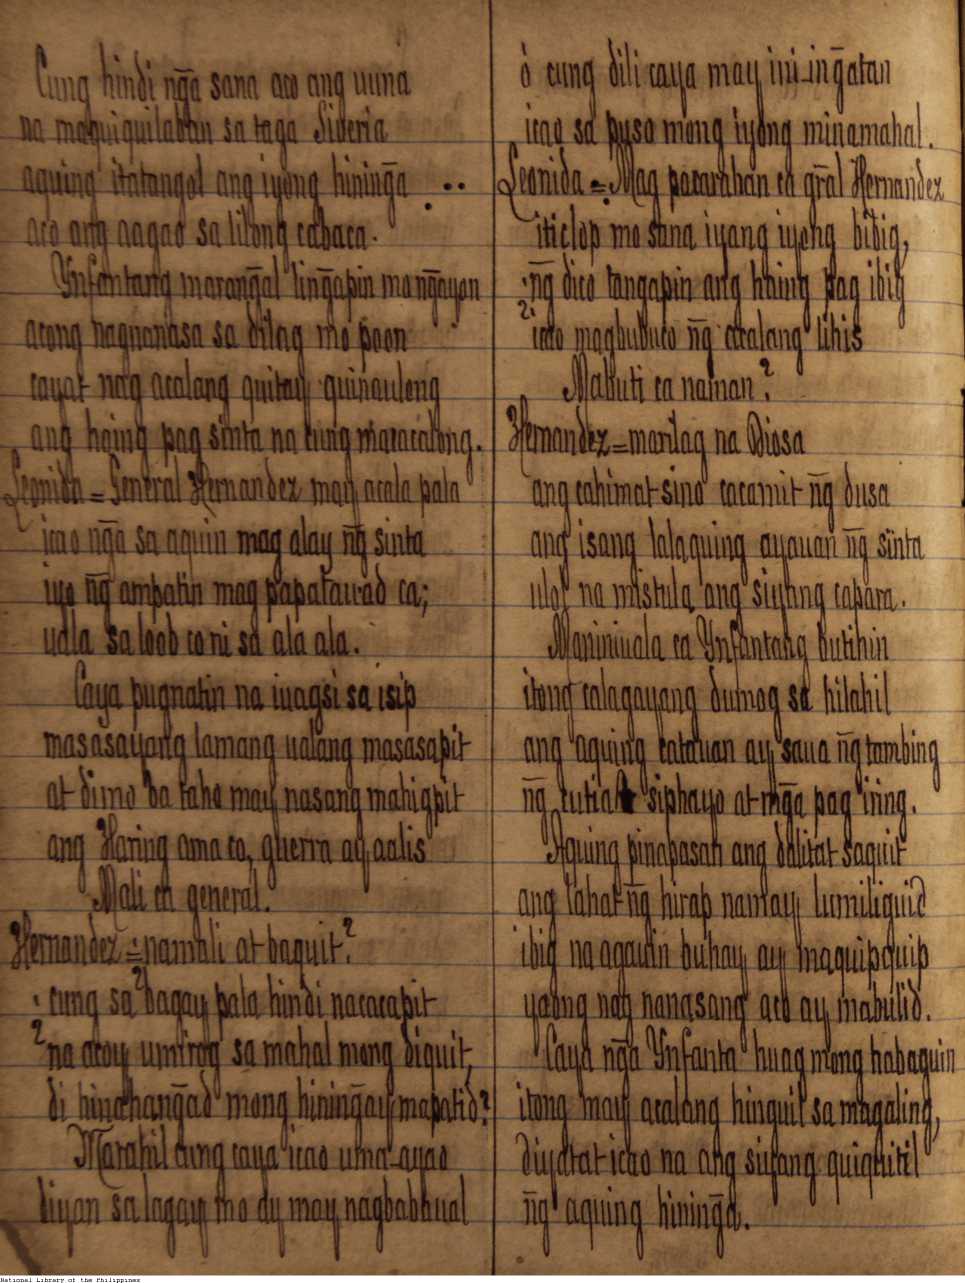 Cung hindi ng̃a sana aco ang uuna
na maquiquilaban sa taga Siberia
aquing itatangol ang iyong hining̃a ...
aco ang aagao sa lilong cabaca.
Ynfantang marang̃al ling̃apin mo ng̃ayon
acong nagnanasa sa dilag mo poon
cayat nag acalang quitay quinauleng
ang haing pag sinta na cung maracalong.
Leonida = General Hernandez may acala pala
icao ng̃a sa aquin mag alay ng̃ sinta
iyo ng̃ ampatin mag papatauad ca;
uala sa loob co ni sa ala ala.
Caya pugnatin na iuagsi sa isip
masasayang lamang ualang masasapit
at dimo ba taho may nasang mahigpit
ang Haring ama co, guerra ay aalis
Mali ca general.
Hernandez = namali at baquit?
¿cung sa bagay pala hindi nacacapit
na acoy umirog sa mahal mong diquit,
di hinahang̃ad mong hining̃ay mapatid?
Marahil cung caya icao uma-ayao
diyan sa lagay mo ay may nagbabaual
ò cung dili caya may ini-ing̃atan
icao sa puso mong iyong minamahal.
Leonida = Mag pacarahan ca gr̃al Hernandez
iticlop mo sana iyang iyong bibig,
ng̃ dico tangapin ang haing pag ibig
¿icao magbubuco ng̃ acalang lihis
Mabuti ca naman?
Hernandez = marilag na Diosa
ang cahimat sino cacamit ng̃ dusa
ang isang lalaquing ayauan ng̃ sinta
ulol na mistula ang siyang capara.
Maniniuala ca Ynfantang butihin
itong calagayang dumog sa hilahil
ang aquing catauan ay saua ng̃ tambing
ng̃ cutiat siphayo at mg̃a pag iring.
Aquing pinapasan ang dalitat saquit
ang lahat ng̃ hirap namay lumiliguid
ibig na agauin buhay ay maquipquip
yaong nag nanasang aco ay mabulid.
Caya ng̃a Ynfanta huag mong habaguin
itong may acalang hinguil sa magaling,
diyatat icao na ang siyang quiquitil
ng̃ aquing hining̃a.
National Library of the Philippines